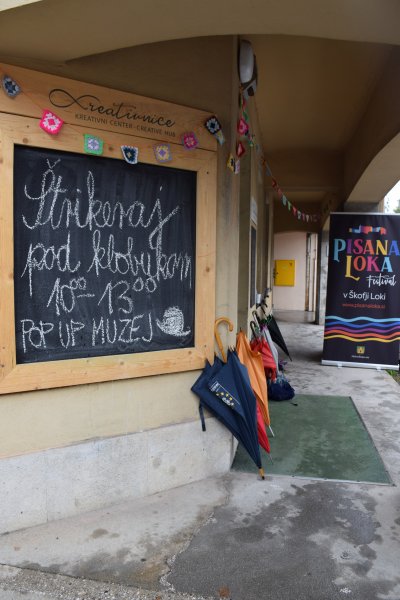 Kreativnice
KREATIVNI CENTER-CREATIVE HUB
Štrikeraj
pod klobukam
10⁰⁰ - 13⁰⁰
POP UP MUZEJ
PISANA
LOKA
Festival
v Škofji Loki
www.pisanaloka.si